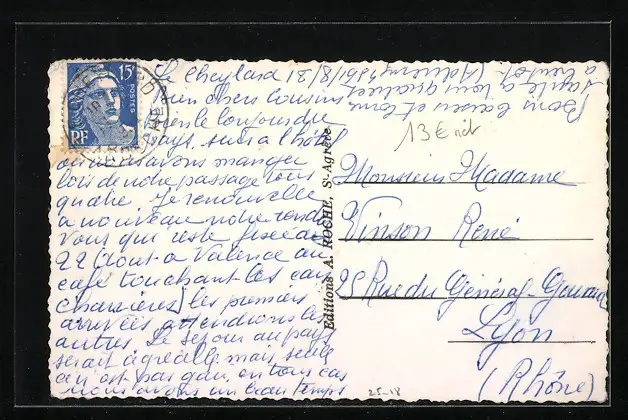 Le Cheylard 31/8/1951
mon cher cousin
pays, suis à l'hôtel
où nous avons manger
lors de notre passage tous
quatre. Je renouvelle
à nouveau notre rendez
vous qui reste fixé au
22 Août à Valence au
café touchant les cars
les premiers
arrivés attendrons les
autres. Le séjour au pays
serait agréable mais seule
ce n'est pas gai, en tous cas
nous avons un beau temps
Bons baisers et bonne
santé à tous quatre
à bientôt
15F
POSTES
RF
13 € net
Editions A. ROCHE, St-Agrève
Monsieur Madame
Vinson René
25 Rue du Général-Gouraud
Lyon
(Rhône)
25-18